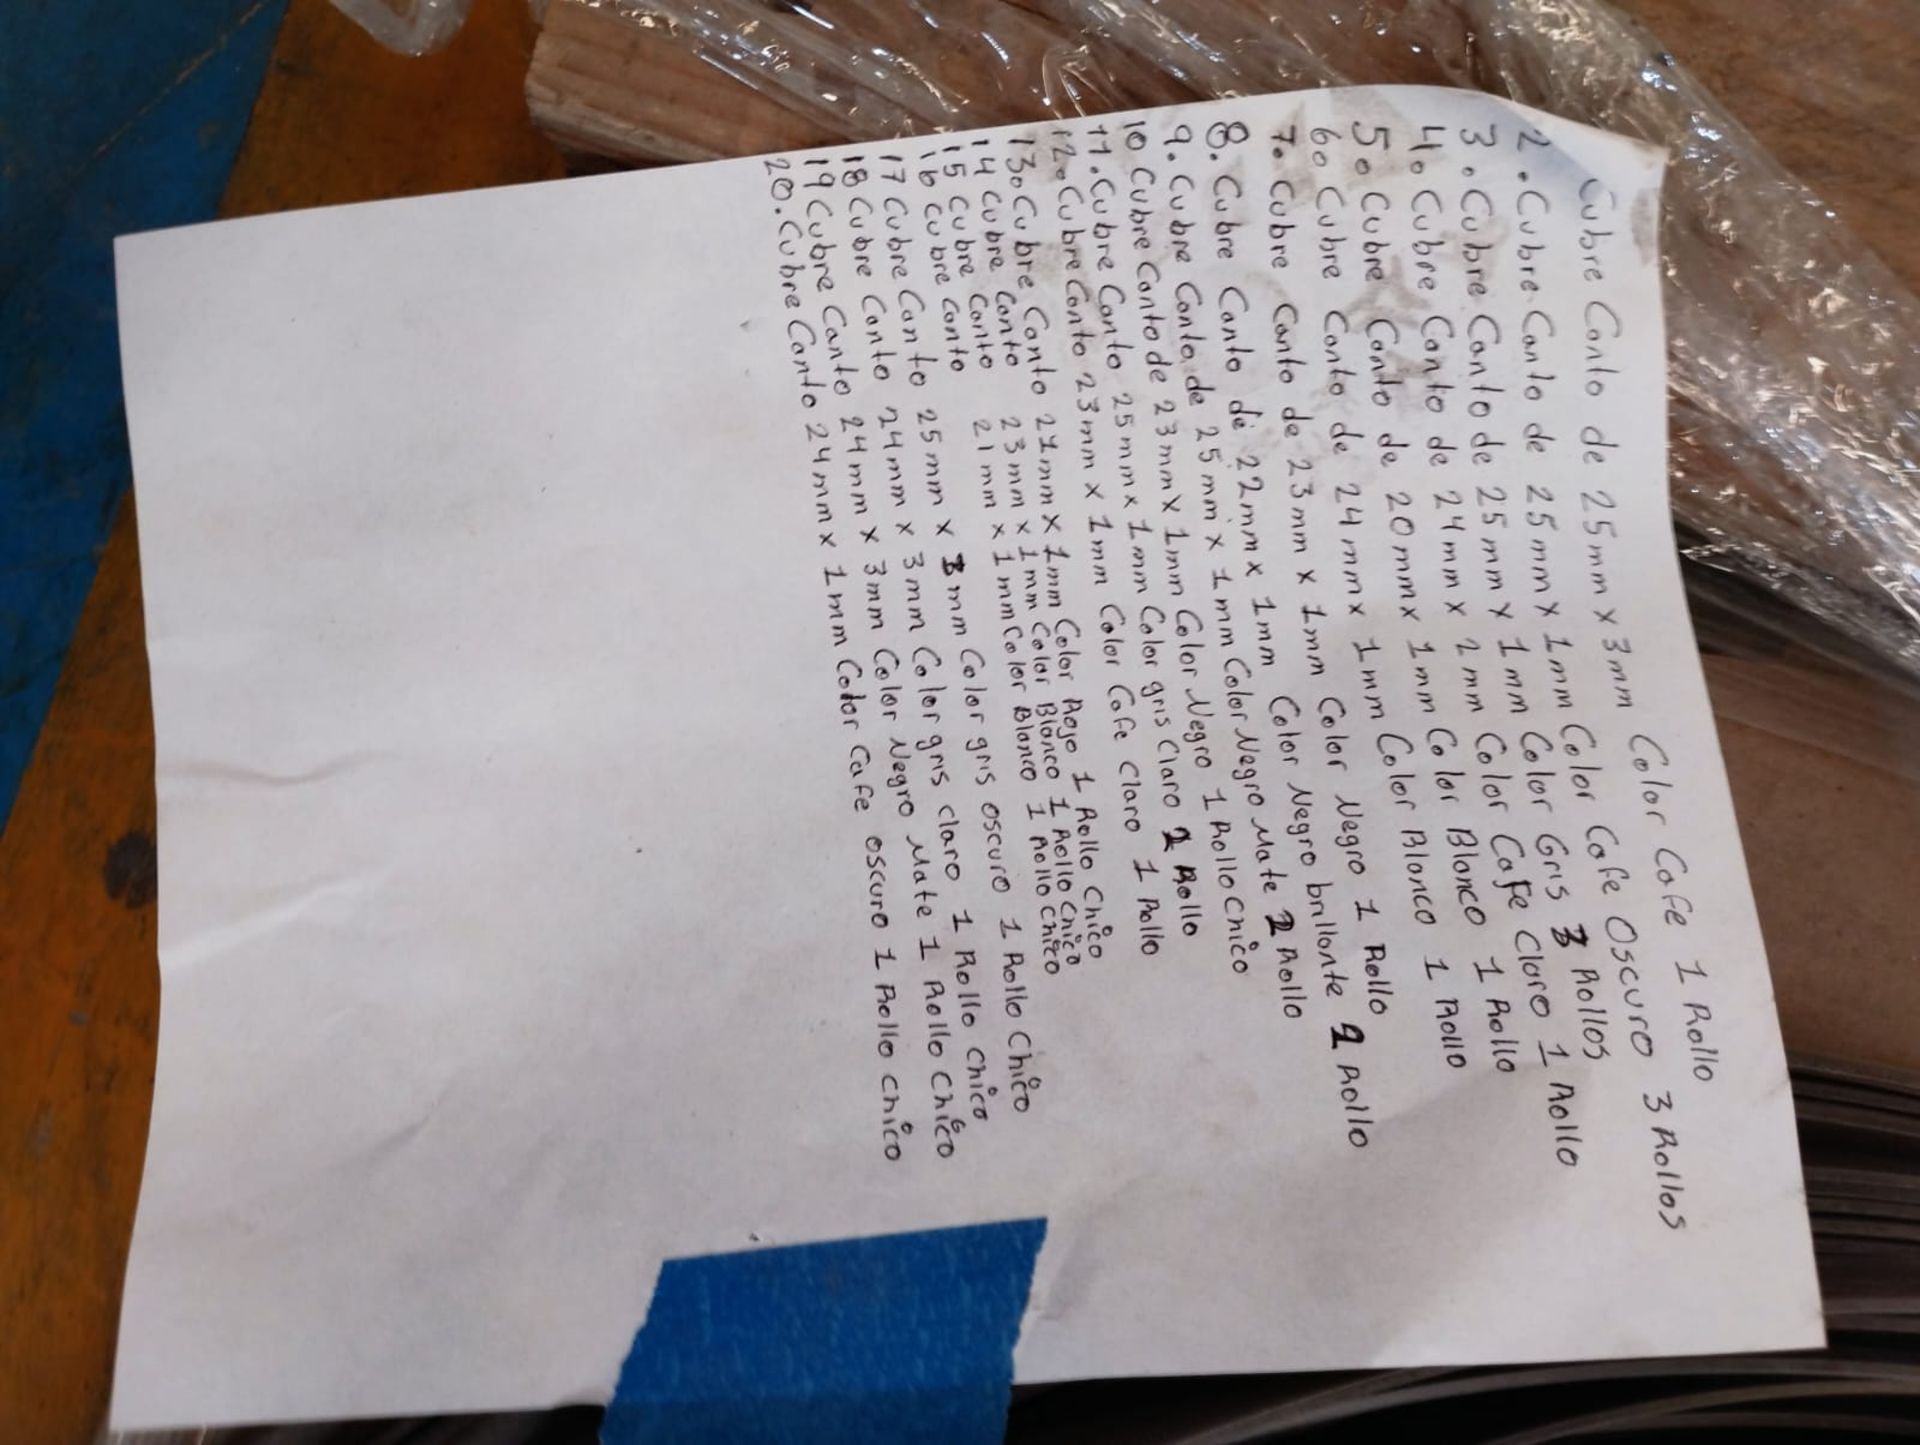 Cubre Canto de 25mm x 3mm Color Cafe 1 Rollo
2. Cubre Canto de 25mm x 1mm Color Cafe Oscuro 3 Rollos
3. Cubre Canto de 25mm x 1mm Color Gris 3 Rollos
4. Cubre Canto de 24mm x 1mm Color Cafe Claro 1 Rollo
5. Cubre Canto de 20mm x 1mm Color Blanco 1 Rollo
6. Cubre Canto de 24mm x 1mm Color Blanco 1 Rollo
7. Cubre Canto de 23mm x 1mm Color Negro 1 Rollo
8. Cubre Canto de 22mm x 1mm Color Negro brillante 2 Rollo
9. Cubre Canto de 25mm x 1mm Color Negro Mate 2 Rollo
10 Cubre Canto de 23mm x 1mm Color Negro 1 Rollo Chico
11. Cubre Canto 25mm x 1mm Color gris Claro 2 Rollo
12. Cubre Canto 23mm x 1mm Color Cafe Claro 1 Rollo
13. Cubre Canto 21mm x 1mm Color Rojo 1 Rollo Chico
14 Cubre Canto 23mm x 1mm Color Blanco 1 Rollo Chico
15 Cubre Canto 21mm x 1mm Color Blanco 1 Rollo Chico
16 Cubre Canto
17 Cubre Canto 25mm x 3mm Color gris oscuro 1 Rollo Chico
18 Cubre Canto 24mm x 3mm Color gris claro 1 Rollo chico
19 Cubre Canto 24mm x 3mm Color Negro Mate 1 Rollo Chico
20. Cubre Canto 24mm x 1mm Color Cafe oscuro 1 Rollo chico